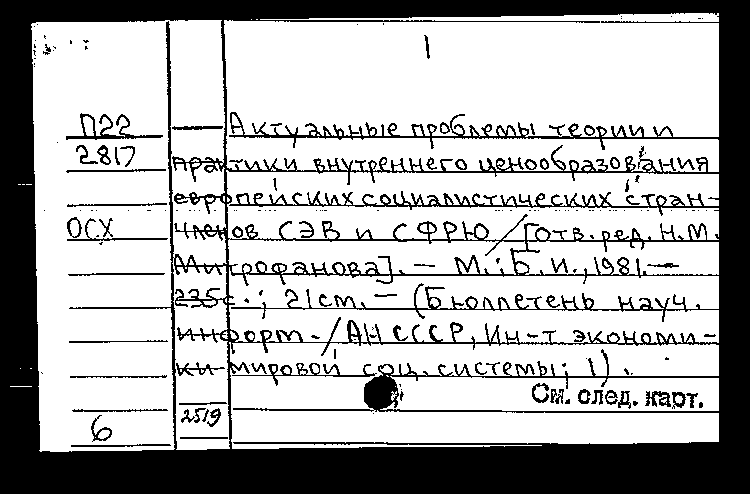 1
П22 — Актуальные проблемы теории и
2817 практики внутреннего ценообразования
европейских социалистических стран-
ОСХ членов СЭВ и СФРЮ / [отв. ред. Н.М.
Митрофанова]. — М.: Б. и., 1981. —
235с.; 21 см. — (Бюллетень науч.
информ. / АН СССР, Ин-т экономи-
ки мировой соц. системы; 1).
См. след. карт.
6 2519